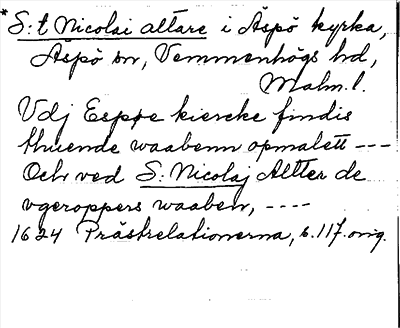 * S:t Nicolai altare i Äspö kyrka,
Äspö sn, Vemmenhögs hd,
Malm.l.
Vdj Espøe kiercke findis
thuende waabenn opmalett ---
Och ved S: Nicolaj Altter de
vgeroppers waaben, ----
1624 Prästrelationerna, s.117.orig.